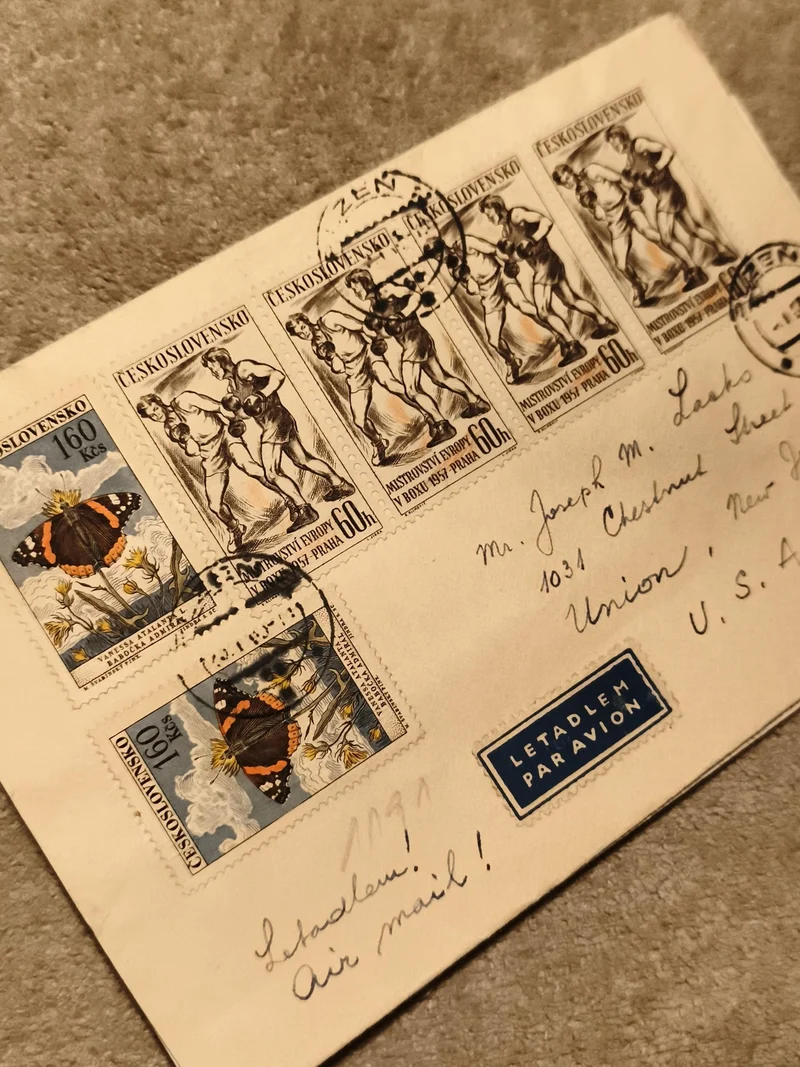 ČESKOSLOVENSKO
MISTROVSTVÍ EVROPY
V BOXU 1957 PRAHA 60h
ČESKOSLOVENSKO
MISTROVSTVÍ EVROPY
V BOXU 1957 PRAHA 60h
ČESKOSLOVENSKO
MISTROVSTVÍ EVROPY
V BOXU 1957 PRAHA 60h
ČESKOSLOVENSKO
MISTROVSTVÍ EVROPY
V BOXU 1957 PRAHA
ZEN
OSLOVENSKO
160
Kčs
VANESSA ATALANTA
BABOČKA ADMIRÁL
M. ŠVABINSKÝ PINX.
JINDRA SC.
ČESKOSLOVENSKO
160
Kčs
VANESSA ATALANTA
BABOČKA ADMIRÁL
Mr. Joseph M. Laaks
1031 Chestnut Street
Union, New
U. S. A
LETADLEM
PAR AVION
Letadlem!
Air mail!